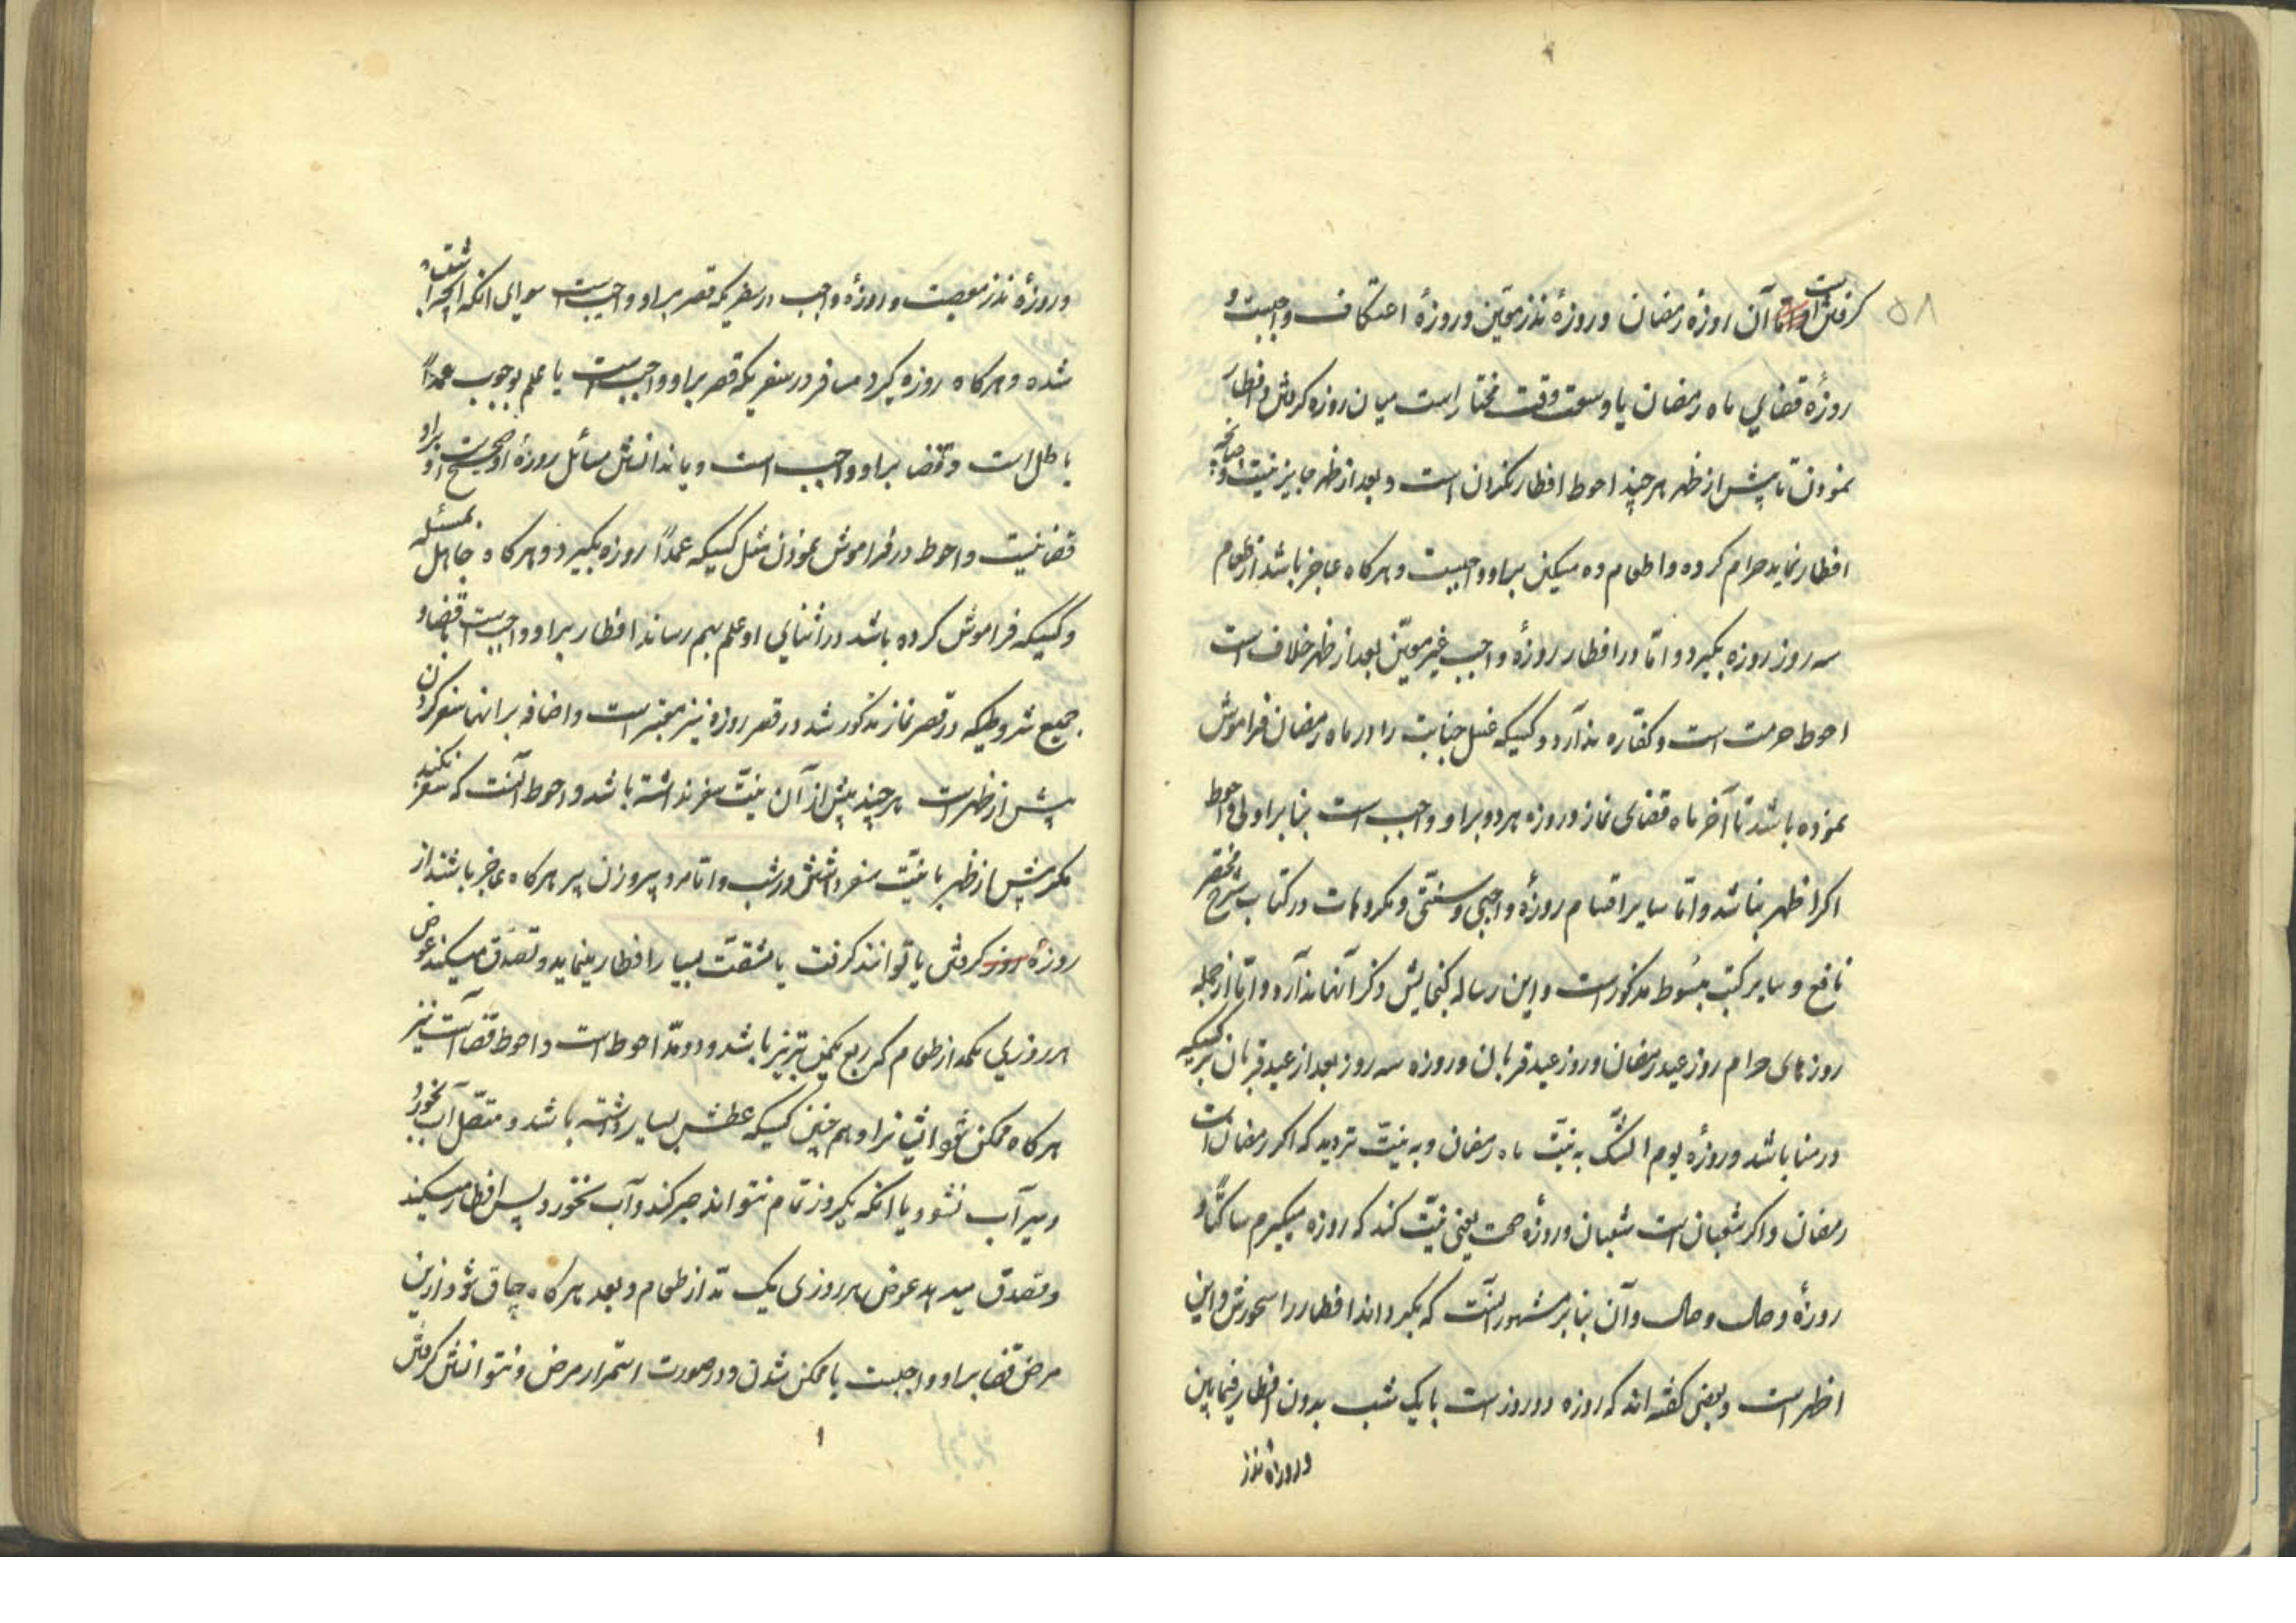 ۵۸
گرفتن است و اما آن روزه رمضان و روزهٔ نذر معیّن و روزهٔ اعتکاف واجبست و
روزهٔ قضای ماه رمضان با وسعت وقت مختار است میان روزه گرفتن و افطار
نمودن تا پیش از ظهر هر چند احوط افطار نکردن است و بعد از ظهر جایز نیست و چنانچه
افطار نماید حرام کرده و اطعام ده مسکین براو واجبست و هرکاه عاجز باشد از طعام
سه روز روزه بگیرد و امّا در افطار روزهٔ واجب غیر معیّن بعد از ظهر خلاف است
احوط حرمت است و کفّاره ندارد و کسیکه غسل جنابت را در ماه رمضان فراموش
نموده باشد تا آخر ماه قضای نماز و روزه هر دو براو واجب است بنابر اولی و احوط
اکر اظهر نباشد و امّا سایر اقسام روزهٔ واجبی و سنّتی و مکروهات در کتاب شرح مختصر
نافع و سایر کتب مبسوط مذکور است و این رساله کنجایش ذکر آنها ندارد و امّا از جمله
روزهای حرام روز عید رمضان و روز عید قربان و روزه سه روز بعد از عید قربان بر کسیکه
در منا باشد و روزهٔ یوم الشّک به نیّت ماه رمضان و به نیّت تردید که اکر رمضان است
رمضان و اکر شعبان است شعبان و روزهٔ صمت یعنی نیّت کند که روزه میکیرم ساکتاً و
روزهٔ وصال وصال و آن بنابر مشهور آنست که بکرداند افطار را سحورش و این
اظهر است و بعضی کفته اند که روزه دو روز است با یک شب بدون افطار فیمابین
و روزه نذر
و روزهٔ نذر معصیت و روزهٔ واجب در سفریکه قصر براو واجبست سوای انکه استثنا
شده و هرکاه روزه کیرد مسافر در سفریکه قصر براو واجب است با علم بوجوب عمداً
باطل است و قضا براو واجب است و با ندانستن مسائل روزهٔ او صحیح است و براو
قضا نیست و احوط در فراموش نمودن مثل کسیکه عمداً روزه بکیرد و هرکاه جاهل بمسئله
و کسیکه فراموش کرده باشد در اثنای او علم بهم رساند افطار براو واجب است با قضا و
جمیع شروطیکه در قصر نماز مذکور شد در قصر روزه نیز معتبر است و اضافه برانها سفر کردن
پیش از ظهر است هر چند پیش از آن نیّت سفر نداشته باشد و احوط آنست که سفر نکند
مکر پیش از ظهر با نیّت سفر داشتن در شب و امّا مرد پیر و زن پیر هرکاه عاجز باشند از
روزهٔ روز کرفتن یا توانند کرفت با مشقّت بسیار افطار مینماید و تصدّق میکند عوض
هر روزی یکمد از طعام که ربع یکمن تبریز باشد و دو مدّ احوط است و احوط قضا است نیز
هرکاه ممکن شود ایشانرا و هم چنین کسیکه عطش بسیار داشته باشد و متصّل آب بخورد
و سیر آب نشود یا انکه یکروز تمام نتواند صبر کند و آب نخورد پس افطار میکند
و تصدّق میدهد عوض هر روزی یک مدّ از طعام و بعد هرکاه چاق شود ازین
مرض قضا براو واجبست با ممکن شدن و در صورت استمرار مرض و نتوانستن کرفتن